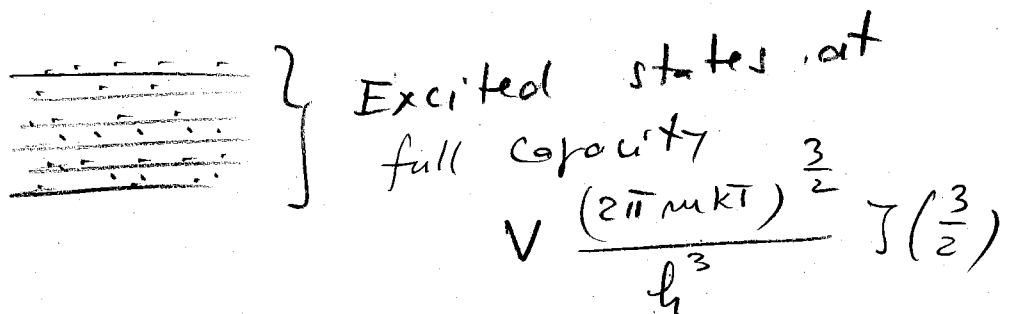 Excited states at
full capacity
V (2π mkT)^{3/2} / h^3 ζ(3/2)